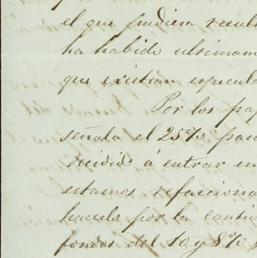 el que pudiera resul
ha habido ultimam
que existian especul
Por los pa
señala el 25%
decidido á entrar en
estamos refacciona
hacerla por la canti
fondos del 10 y 8%